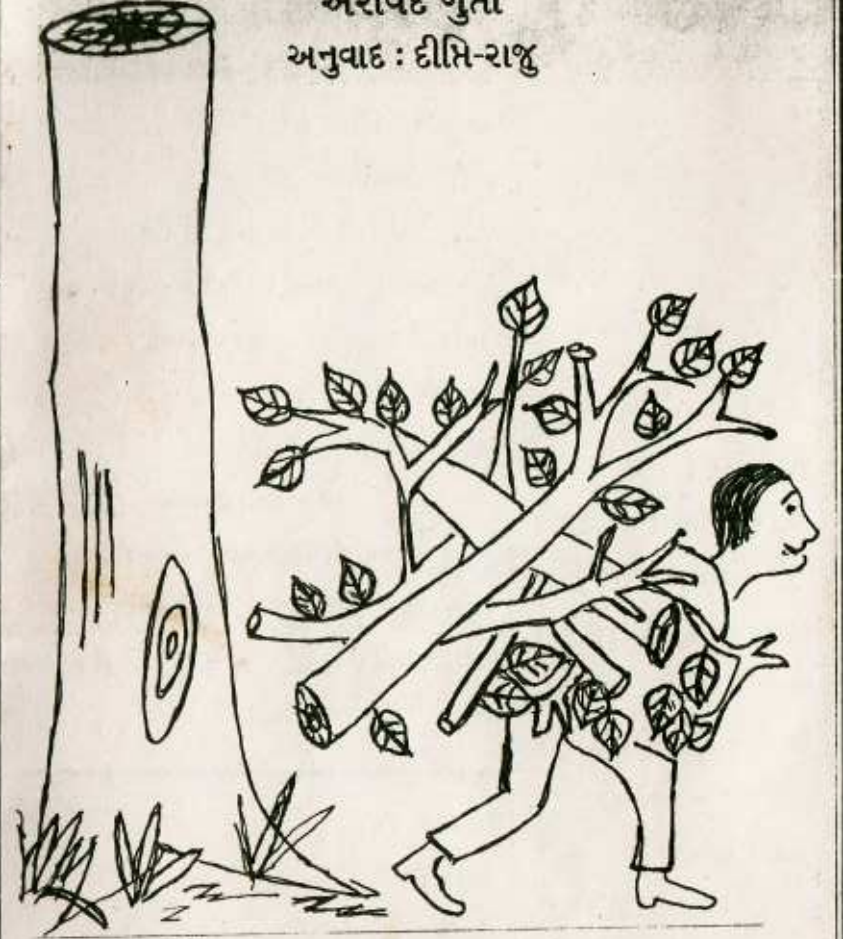 અરવિંદ ગુપ્તા
અનુવાદ : દીપ્તિ-રાજુ